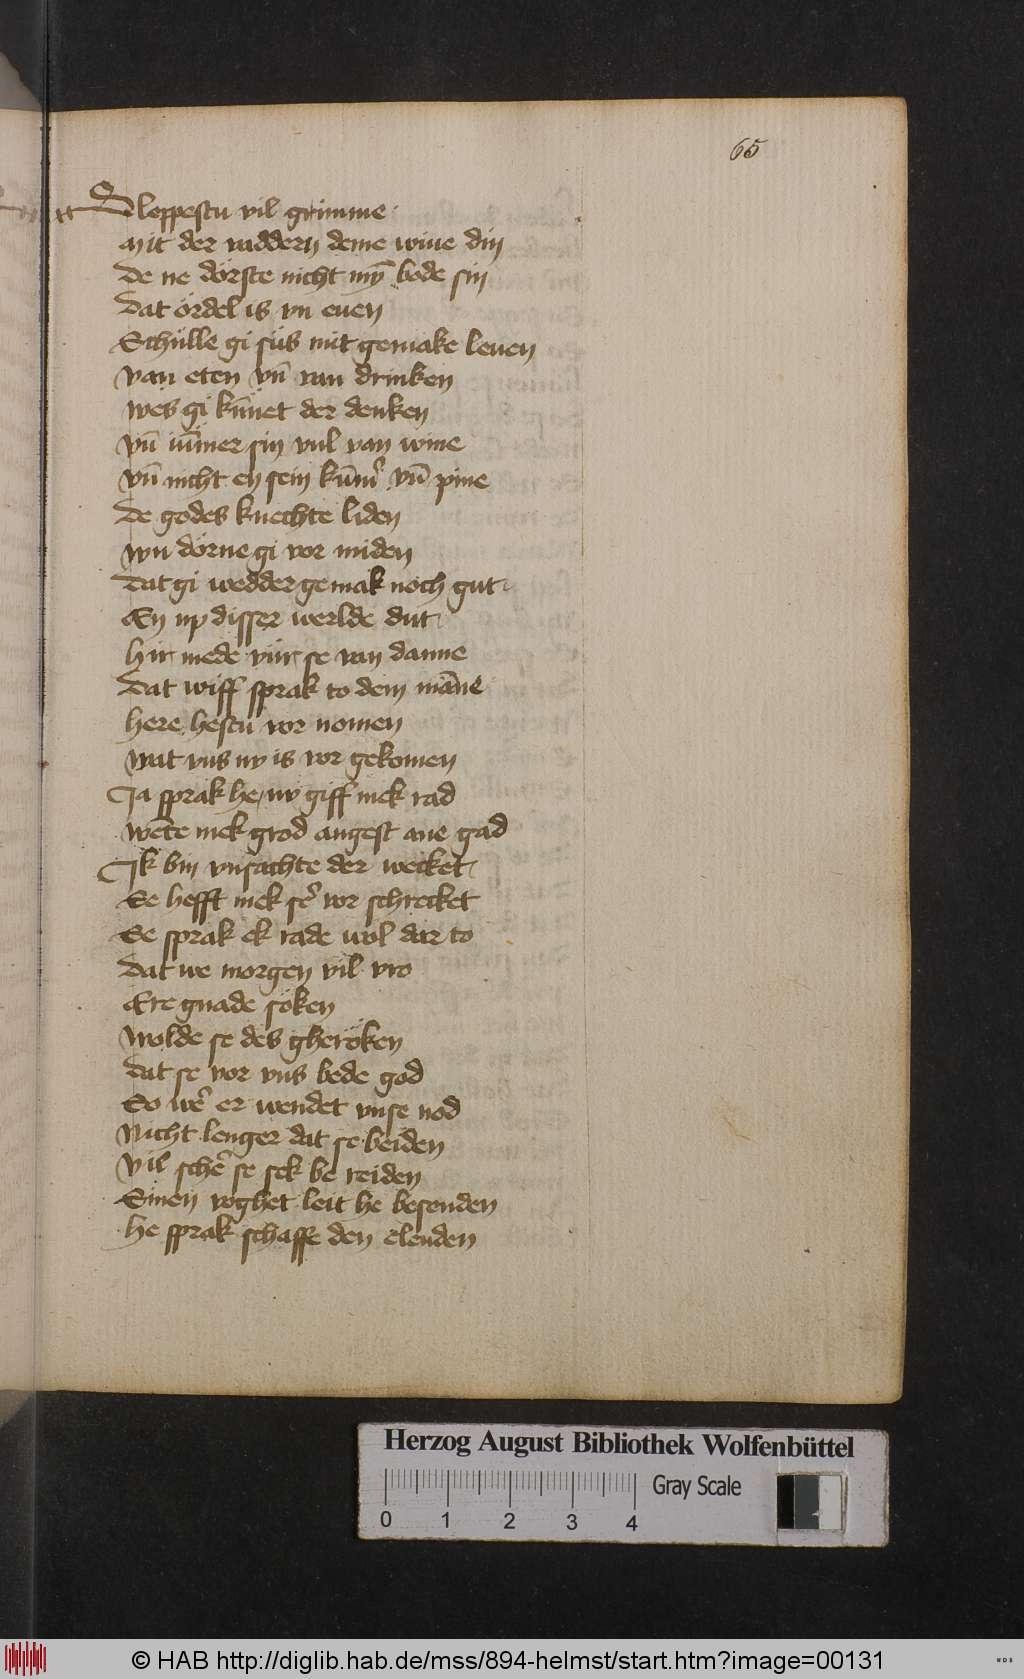 65
Sleppestu vil grimme
Mit der naddern deme wiue din
De ne dörste nicht mȳ bode sin
Dat ördel is vn euen
Schülle gi süs mit gemake leuen
Van eten vn̄ van drinken
Wes gi kūnet der denken
Vn̄ iūmer sin vul van wine
Vn̄ nicht en sein kūm̄ vn̄ pine
De godes knechte liden
Wu dörue gi vor miden
Dat gi wedder gemak noch gut
En up disser werlde dut
Hir mede vür se van danne
Dat wiff sprak to dem māne
Here hestu vor nomen
Wat vns nv is vor gekomen
Ja sprak he nv giff mek rad
Wēte mek grod angest ane gad
Ik bin vnsachte der wecket
Se hefft mek sē vor schrecket
Se sprak ek rade wol dar to
Dat we morgen vil vro
Ere gnade söken
Wolde se des gheröken
Dat se vor vns bede god
So wē er wendet vnse nod
Nicht lenger dat se beiden
Vil schē se sek be reiden
Einen voghet leit he besenden
He sprak schaffe den elenden
Herzog August Bibliothek Wolfenbüttel
Gray Scale
0 1 2 3 4
© HAB http://diglib.hab.de/mss/894-helmst/start.htm?image=00131